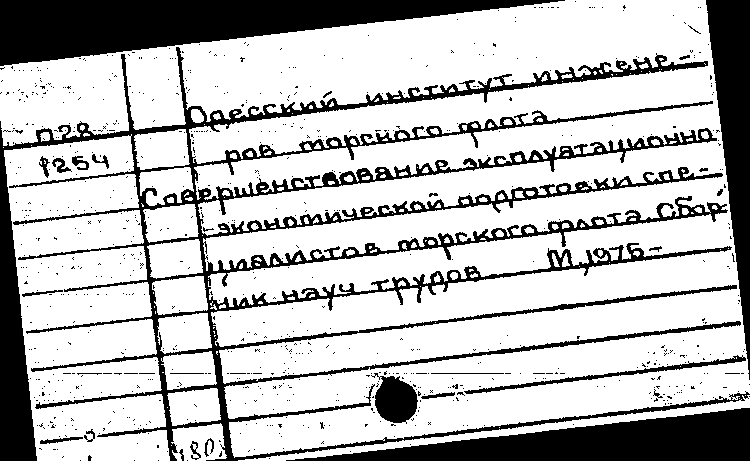 Одесский институт инжене-
п28
9254
ров морского флота.
Совершенствование эксплуатационно
-экономической подготовки спе-
циалистов морского флота. Сбор
ник науч трудов М, 1975-
80